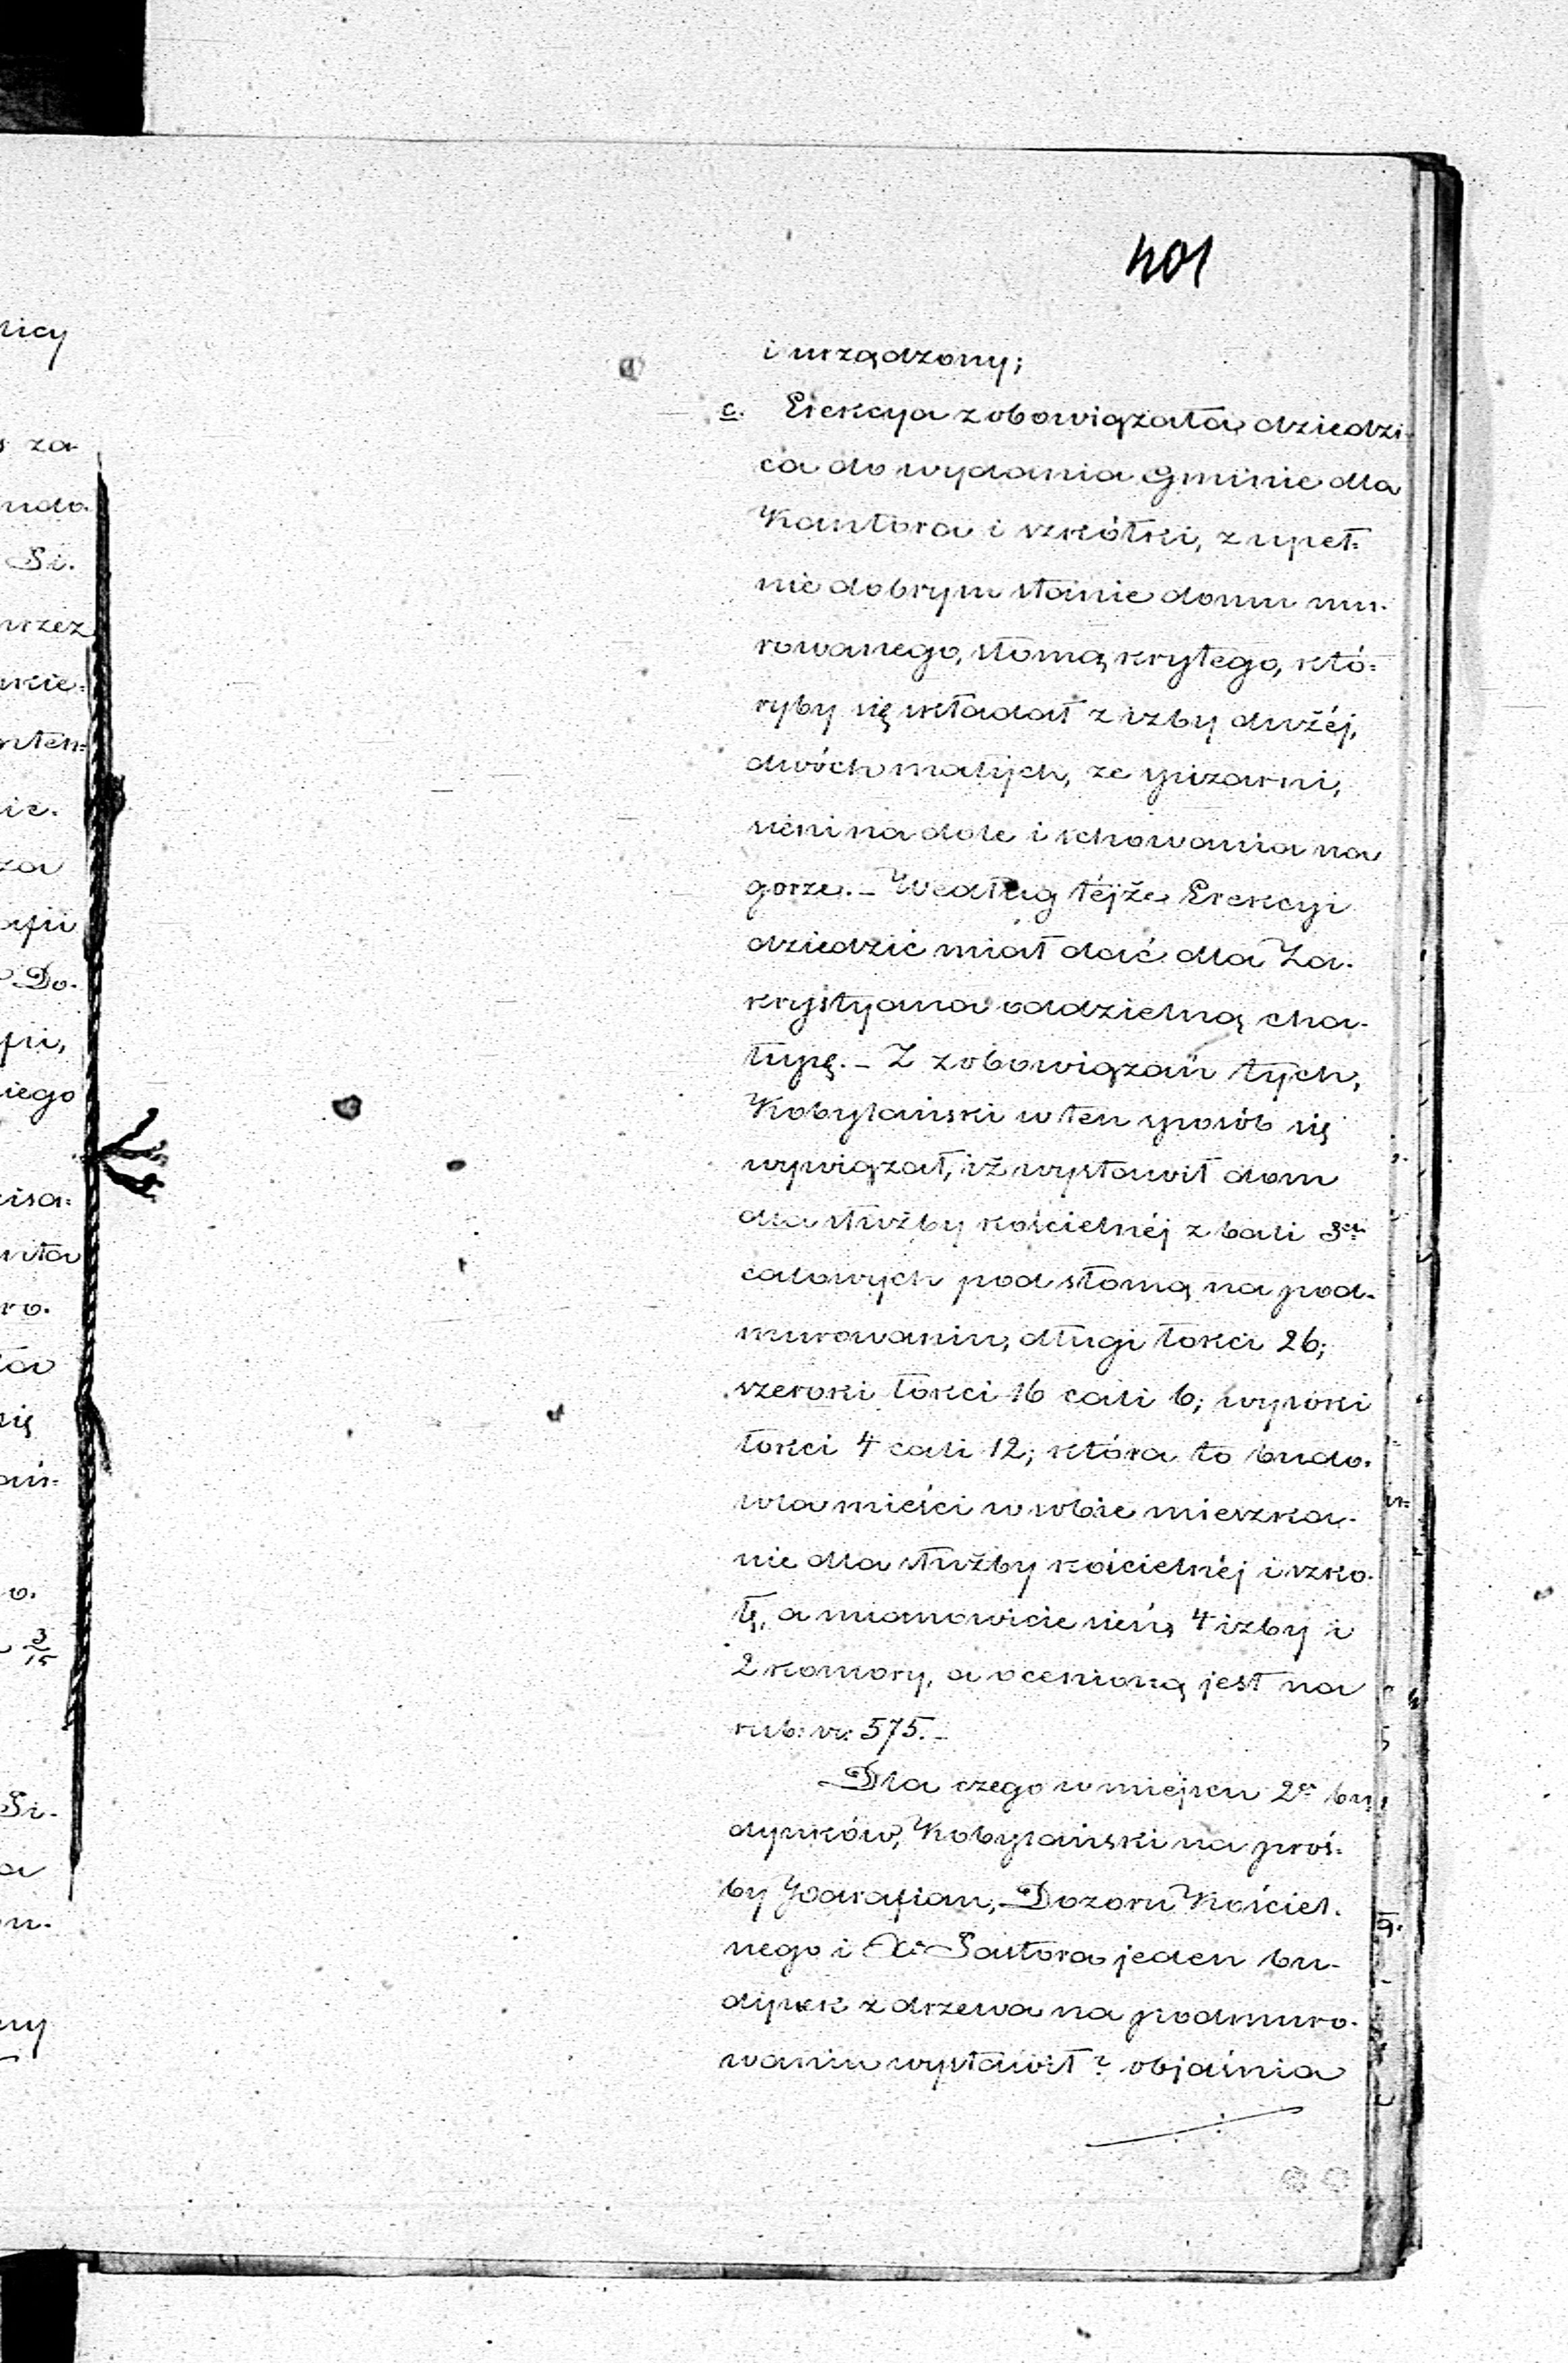 401
i urządzony;
c. Erekcya zobowiązała dziedzi-
ca do wydania Gminie dla
Kantora i szkółki, zupeł=
nie dobrym stanie domu mu-
rowanego, słomą krytego, któ=
ryby się składał z izby dużéj,
dwóch małych, ze spizarni,
sieni na dole i schowania na
gorze. – Według téjże Erekcyi
dziedzic miał dać dla Za-
krystyana oddzielną cha-
łupę. – Z zobowiązań tych,
Kobylański w ten sposób się
wywiązał, iż wystawił dom
dla służby kościelnéj z bali 3ch
calowych pod słomą na pod-
murowaniu, długi łokci 26;
szeroki łokci 16 cali 6; wysoki
łokci 4 cali 12; która to budo-
wla mieści w sobie mieszka-
nie dla służby kościelnéj i szko-
łę, a mianowicie sień, 4 izby i
2 komory, a ocenioną jest na
rub: sr: 575. –
Dla czego w miejscu 2ch bu-
dynków, Kobylański na proś-
by Parafian, Dozoru Kościel-
nego i X. Pastora jeden bu-
dynek z drzewa na podmuro-
waniu wystawił? objaśnia
nicy
za-
Si.
przez
nie.
za
afii
Do-
fii,
niego
pisa=
ro-
się
o.
3/15
Si-
a
ny